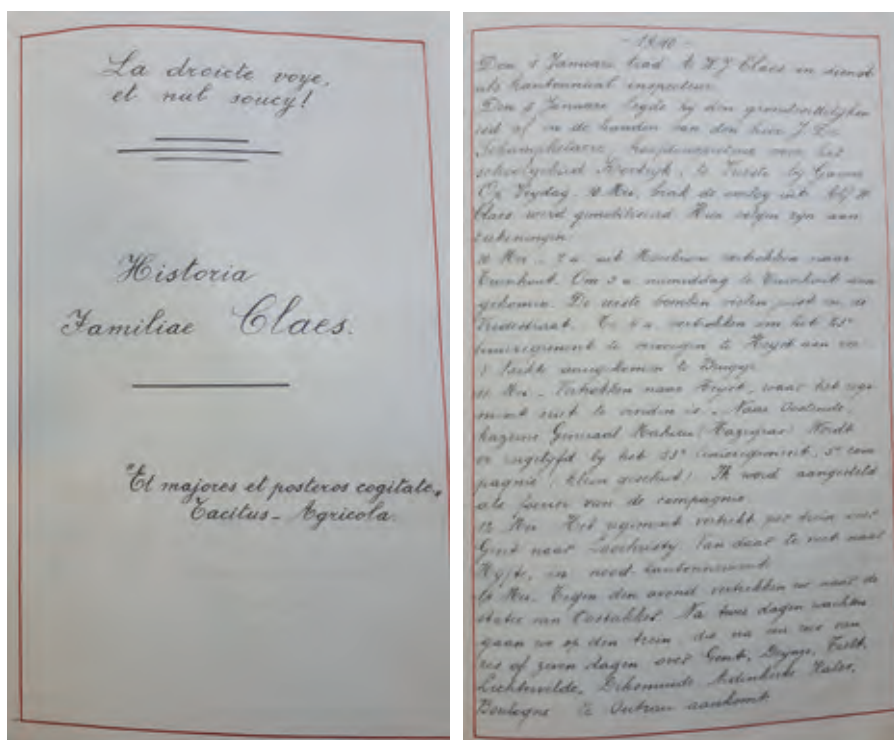 La droicte voye,
et nul soucy!
Historia
Familiae Claes.
"Et majores et posteros cogitate„
Tacitus - Agricola.
- 1940 -
Den 1 Januari trad h. Claes in dienst
als kantonnaal inspecteur.
Den Januari legde hij den grondwettelijken
eed af in de handen van den heer J. De
Schamphelaere, hoofdinspecteur van het
schoolgebied Kortrijk, te bij Gavere
Op Vrijdag, 10 Mei, brak de oorlog uit.
Claes werd gemobiliseerd. Hier volgen zijn aan
teekeningen:
10 Mei - 7 u. uit vertrokken naar
Turnhout. Om 2 u. namiddag te Turnhout aan
gekomen. De eerste bommen vielen juist in de
Te 4 u. vertrokken om het 33e
linieregiment te vervoegen te Heyst aan zee
aangekomen te Brugge.
11 Mei - Vertrokken naar Heyst, waar het regi
ment niet te vinden is. Naar Oostende,
kazerne Generaal Mahieu (Hazegras) Wordt
er ingelijfd bij het 33e linieregiment, 5e com
pagnie (klein geschut). Ik word aangesteld
als foerier van de compagnie.
12 Mei. Het regiment vertrekt per trein over
Gent naar Loochristy. Van daar te voet naar
Hyfte, in nood-kantonnement
Mei. Tegen den avond vertrekken we naar de
statie van Oostakker. Na twee dagen wachten
gaan we op den trein, die na een reis van
zes of zeven dagen over Gent, Deynze, Tielt,
Lichtervelde, Diksmuide, Adinkerke, Kales,
Boulogne te Outreau aankomt